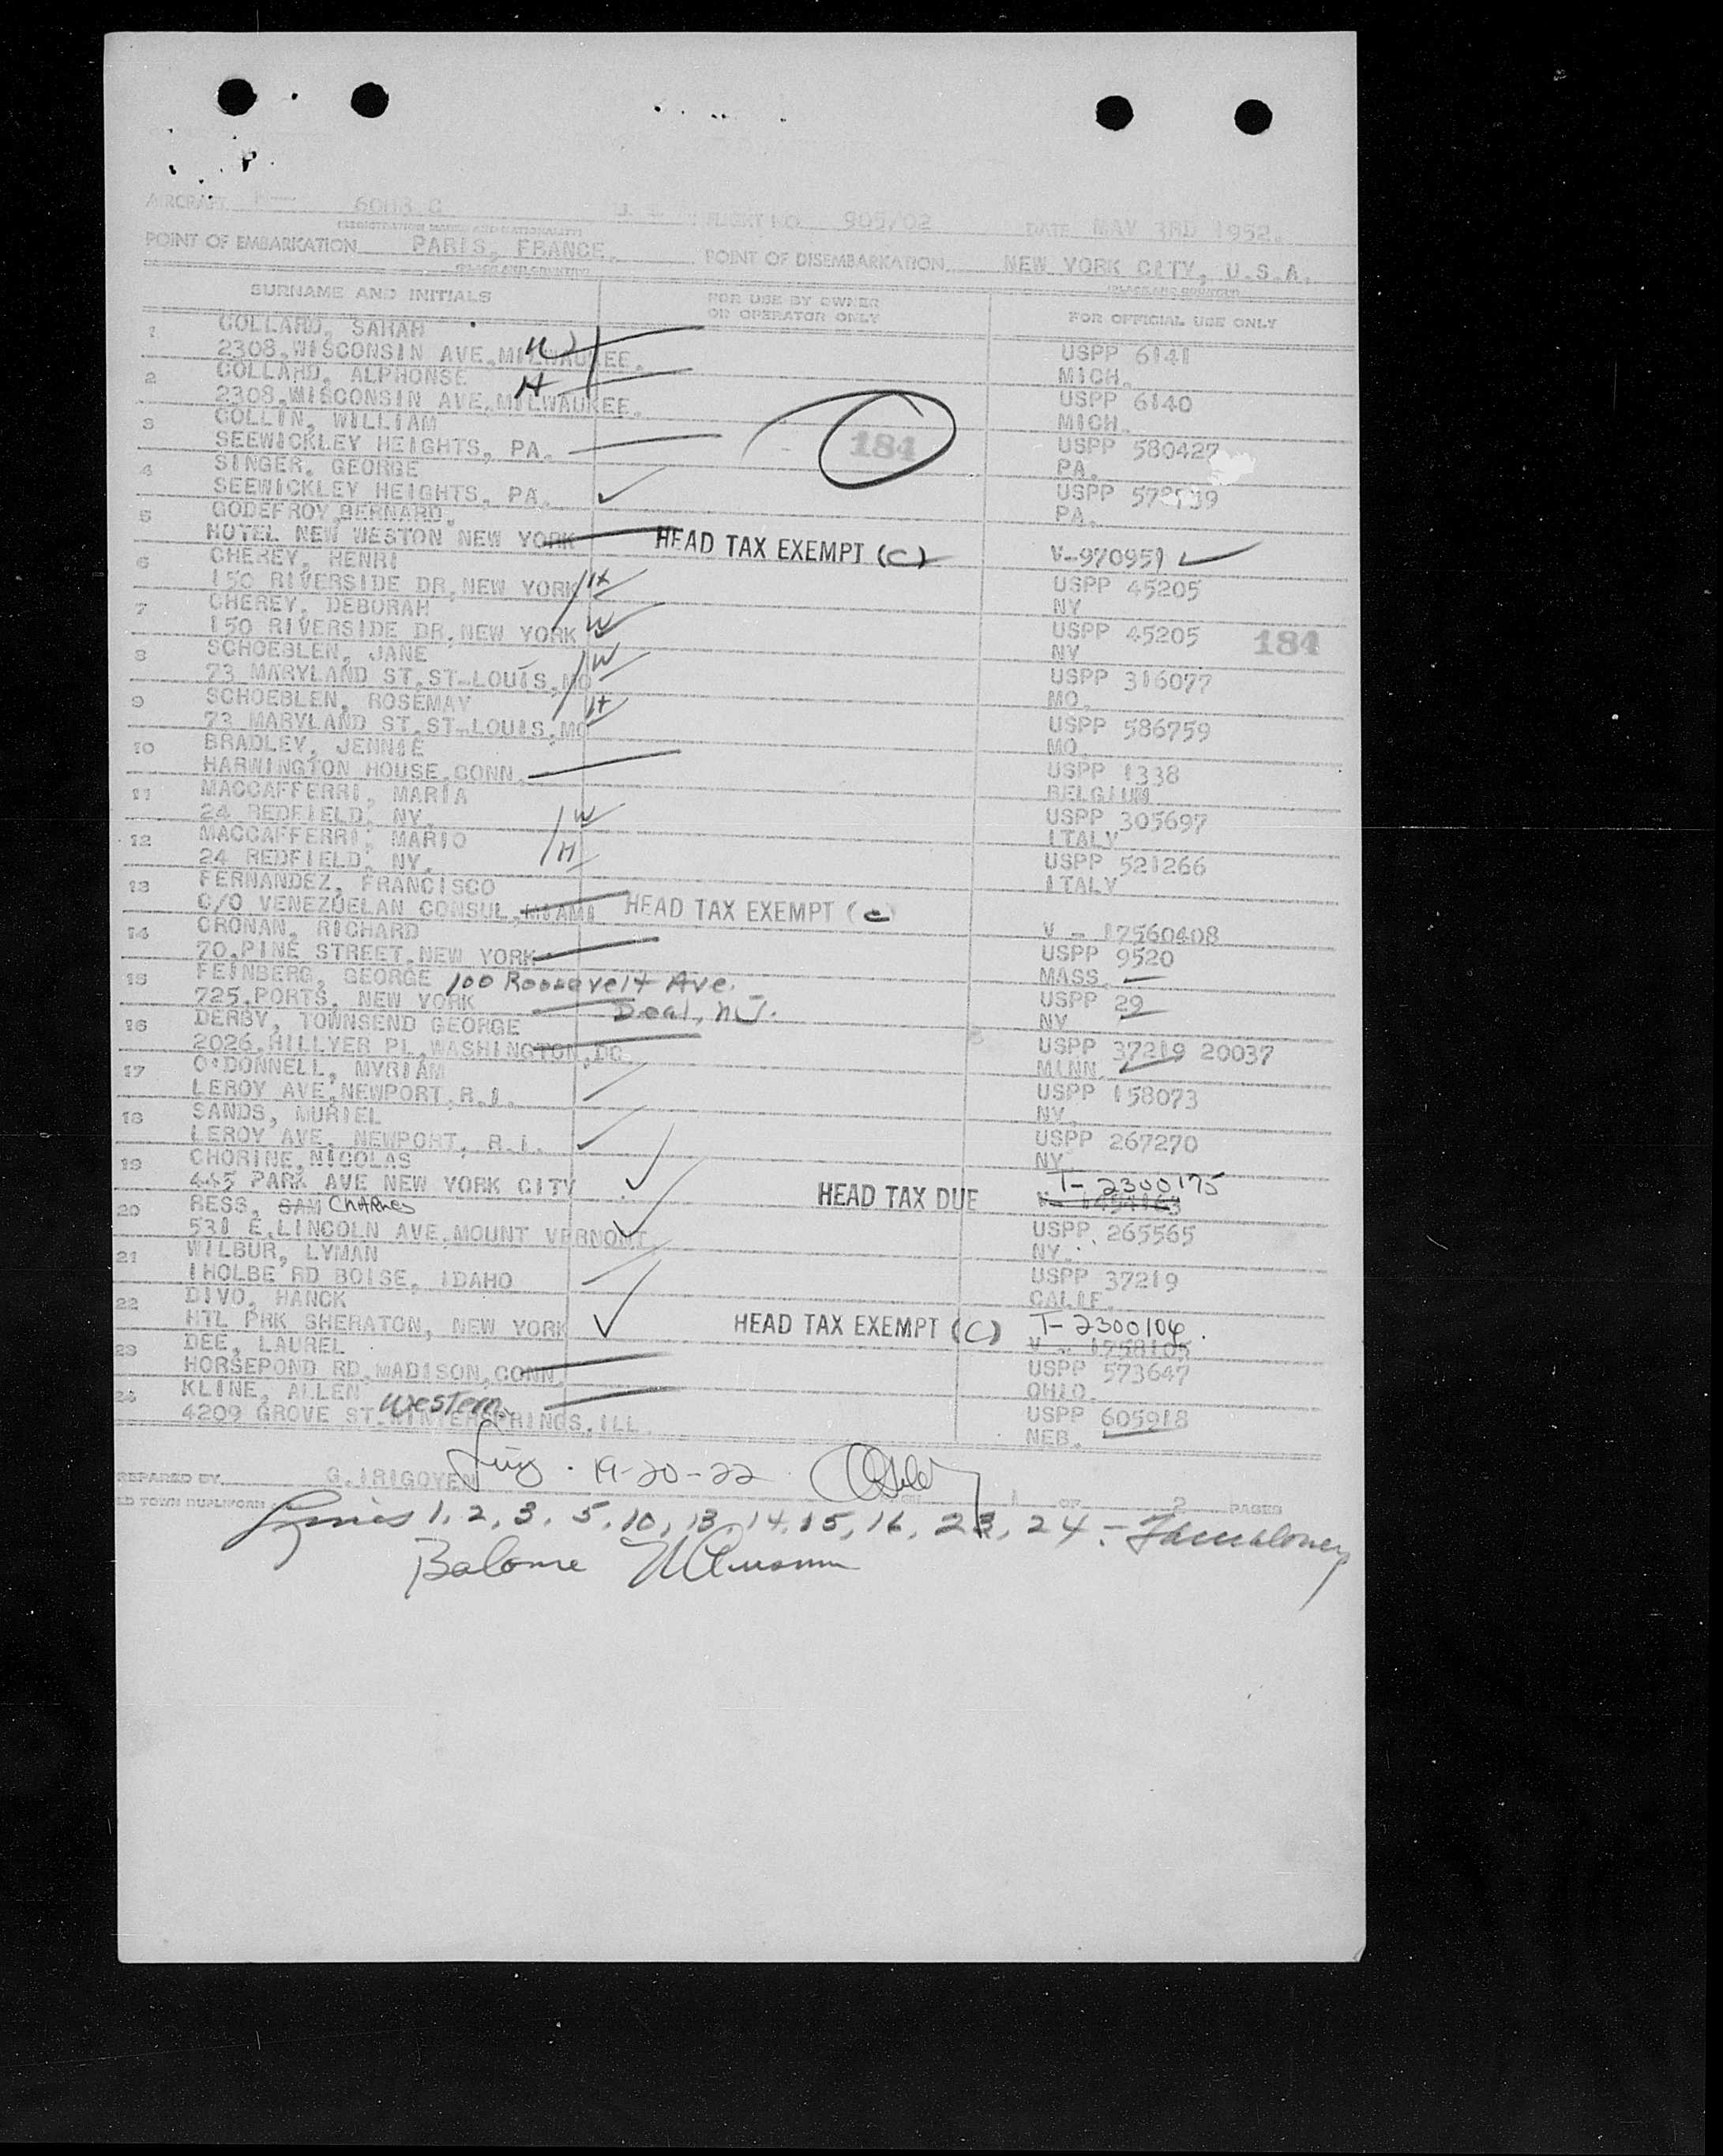 AIRCRAFT N— 6003 C U.S. FLIGHT NO. 905/02 DATE MAY 3RD 1952.
(REGISTRATION MARKS AND NATIONALITY)
POINT OF EMBARKATION PARIS, FRANCE. POINT OF DISEMBARKATION NEW YORK CITY, U.S.A.
(PLACE AND COUNTRY) (PLACE AND COUNTRY)
SURNAME AND INITIALS FOR USE BY OWNER OR OPERATOR ONLY FOR OFFICIAL USE ONLY
1 COLLARD, SARAH
2308,WISCONSIN AVE,MILWAUKEE. W USPP 6141
2 COLLARD, ALPHONSE MICH.
2308,WISCONSIN AVE,MILWAUKEE. H USPP 6140
3 COLLIN, WILLIAM MICH.
SEEWICKLEY HEIGHTS, PA. 184 USPP 580427
4 SINGER, GEORGE PA.
SEEWICKLEY HEIGHTS, PA. USPP
5 GODEFROY,BERNARD. PA.
HOTEL NEW WESTON NEW YORK HEAD TAX EXEMPT (C) V-970959
6 CHEREY, HENRI
150 RIVERSIDE DR,NEW YORK H USPP 45205
7 CHEREY, DEBORAH NY
150 RIVERSIDE DR,NEW YORK W USPP 45205 184
8 SCHOEBLEN, JANE NY
73 MARYLAND ST,ST-LOUIS,MO W USPP 316077
9 SCHOEBLEN, ROSEMAY MO.
73 MARYLAND ST,ST-LOUIS,MO H USPP 586759
10 BRADLEY, JENNIE MO.
HARWINGTON HOUSE,CONN. USPP 1338
11 MACCAFFERRI, MARIA BELGIUM
24 REDFIELD, NY. W USPP 305697
12 MACCAFFERRI, MARIO ITALY
24 REDFIELD, NY. H USPP 521266
13 FERNANDEZ, FRANCISCO ITALY
C/O VENEZUELAN CONSUL,MIAMI HEAD TAX EXEMPT (C
14 CRONAN, RICHARD V - 17560408
70,PINE STREET,NEW YORK USPP 9520
15 FEINBERG, GEORGE 100 Roosevelt Ave. MASS.
725,PORTS, NEW YORK Deal, NJ. USPP 29
16 DERBY, TOWNSEND GEORGE NY
2026,HILLYER PL,WASHINGTON,DC USPP 37219 20037
17 O'DONNELL, MYRIAM MINN.
LEROY AVE,NEWPORT,R.I. USPP 158073
18 SANDS, MURIEL NY.
LEROY AVE, NEWPORT, R.I. USPP 267270
19 CHORINE,NICOLAS NY.
445 PARK AVE NEW YORK CITY HEAD TAX DUE T-2300175
20 RESS, SAM Charles
531 E.LINCOLN AVE,MOUNT VERNONT USPP. 265565
21 WILBUR, LYMAN NY.
1HOLBE RD BOISE, IDAHO USPP 37219
22 DIVO, HANCK CALIF.
HTL PRK SHERATON, NEW YORK HEAD TAX EXEMPT (C) T-2300106.
23 DEE, LAUREL V - 1758105
HORSEPOND RD,MADISON,CONN. USPP 573647
24 KLINE, ALLEN Western OHIO.
4209 GROVE ST.WINTERSPRINGS,ILL. USPP 605918
NEB.
PREPARED BY G.IRIGOYEN 19-20-22 1 OF 2 PAGES
Lines 1, 2, 3, 5, 10, 13, 14, 15, 16, 23, 24 -
Balance